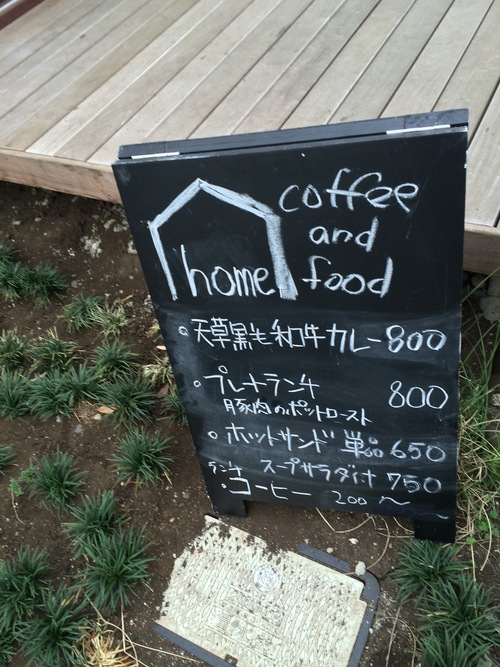 coffee
and
home food
○天草黒毛和牛カレー800
○プレートランチ 800
豚肉のポットロースト
○ホットサンド 単品 650
ランチ スープサラダ付 750
○コーヒー 200〜